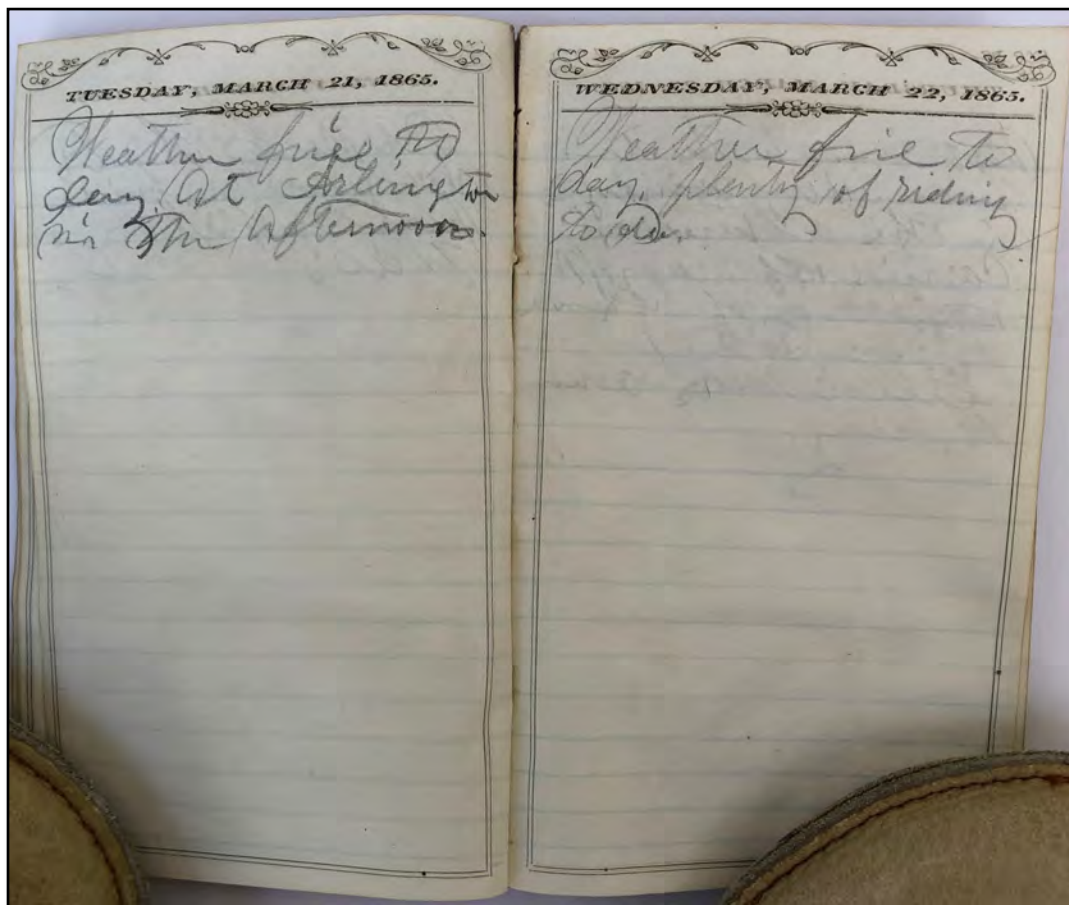 TUESDAY, MARCH 21, 1865.
Weather fine to
day. At Arlington
in the Afternoon.
WEDNESDAY, MARCH 22, 1865.
Weather fine to
day, plenty of riding
to do.